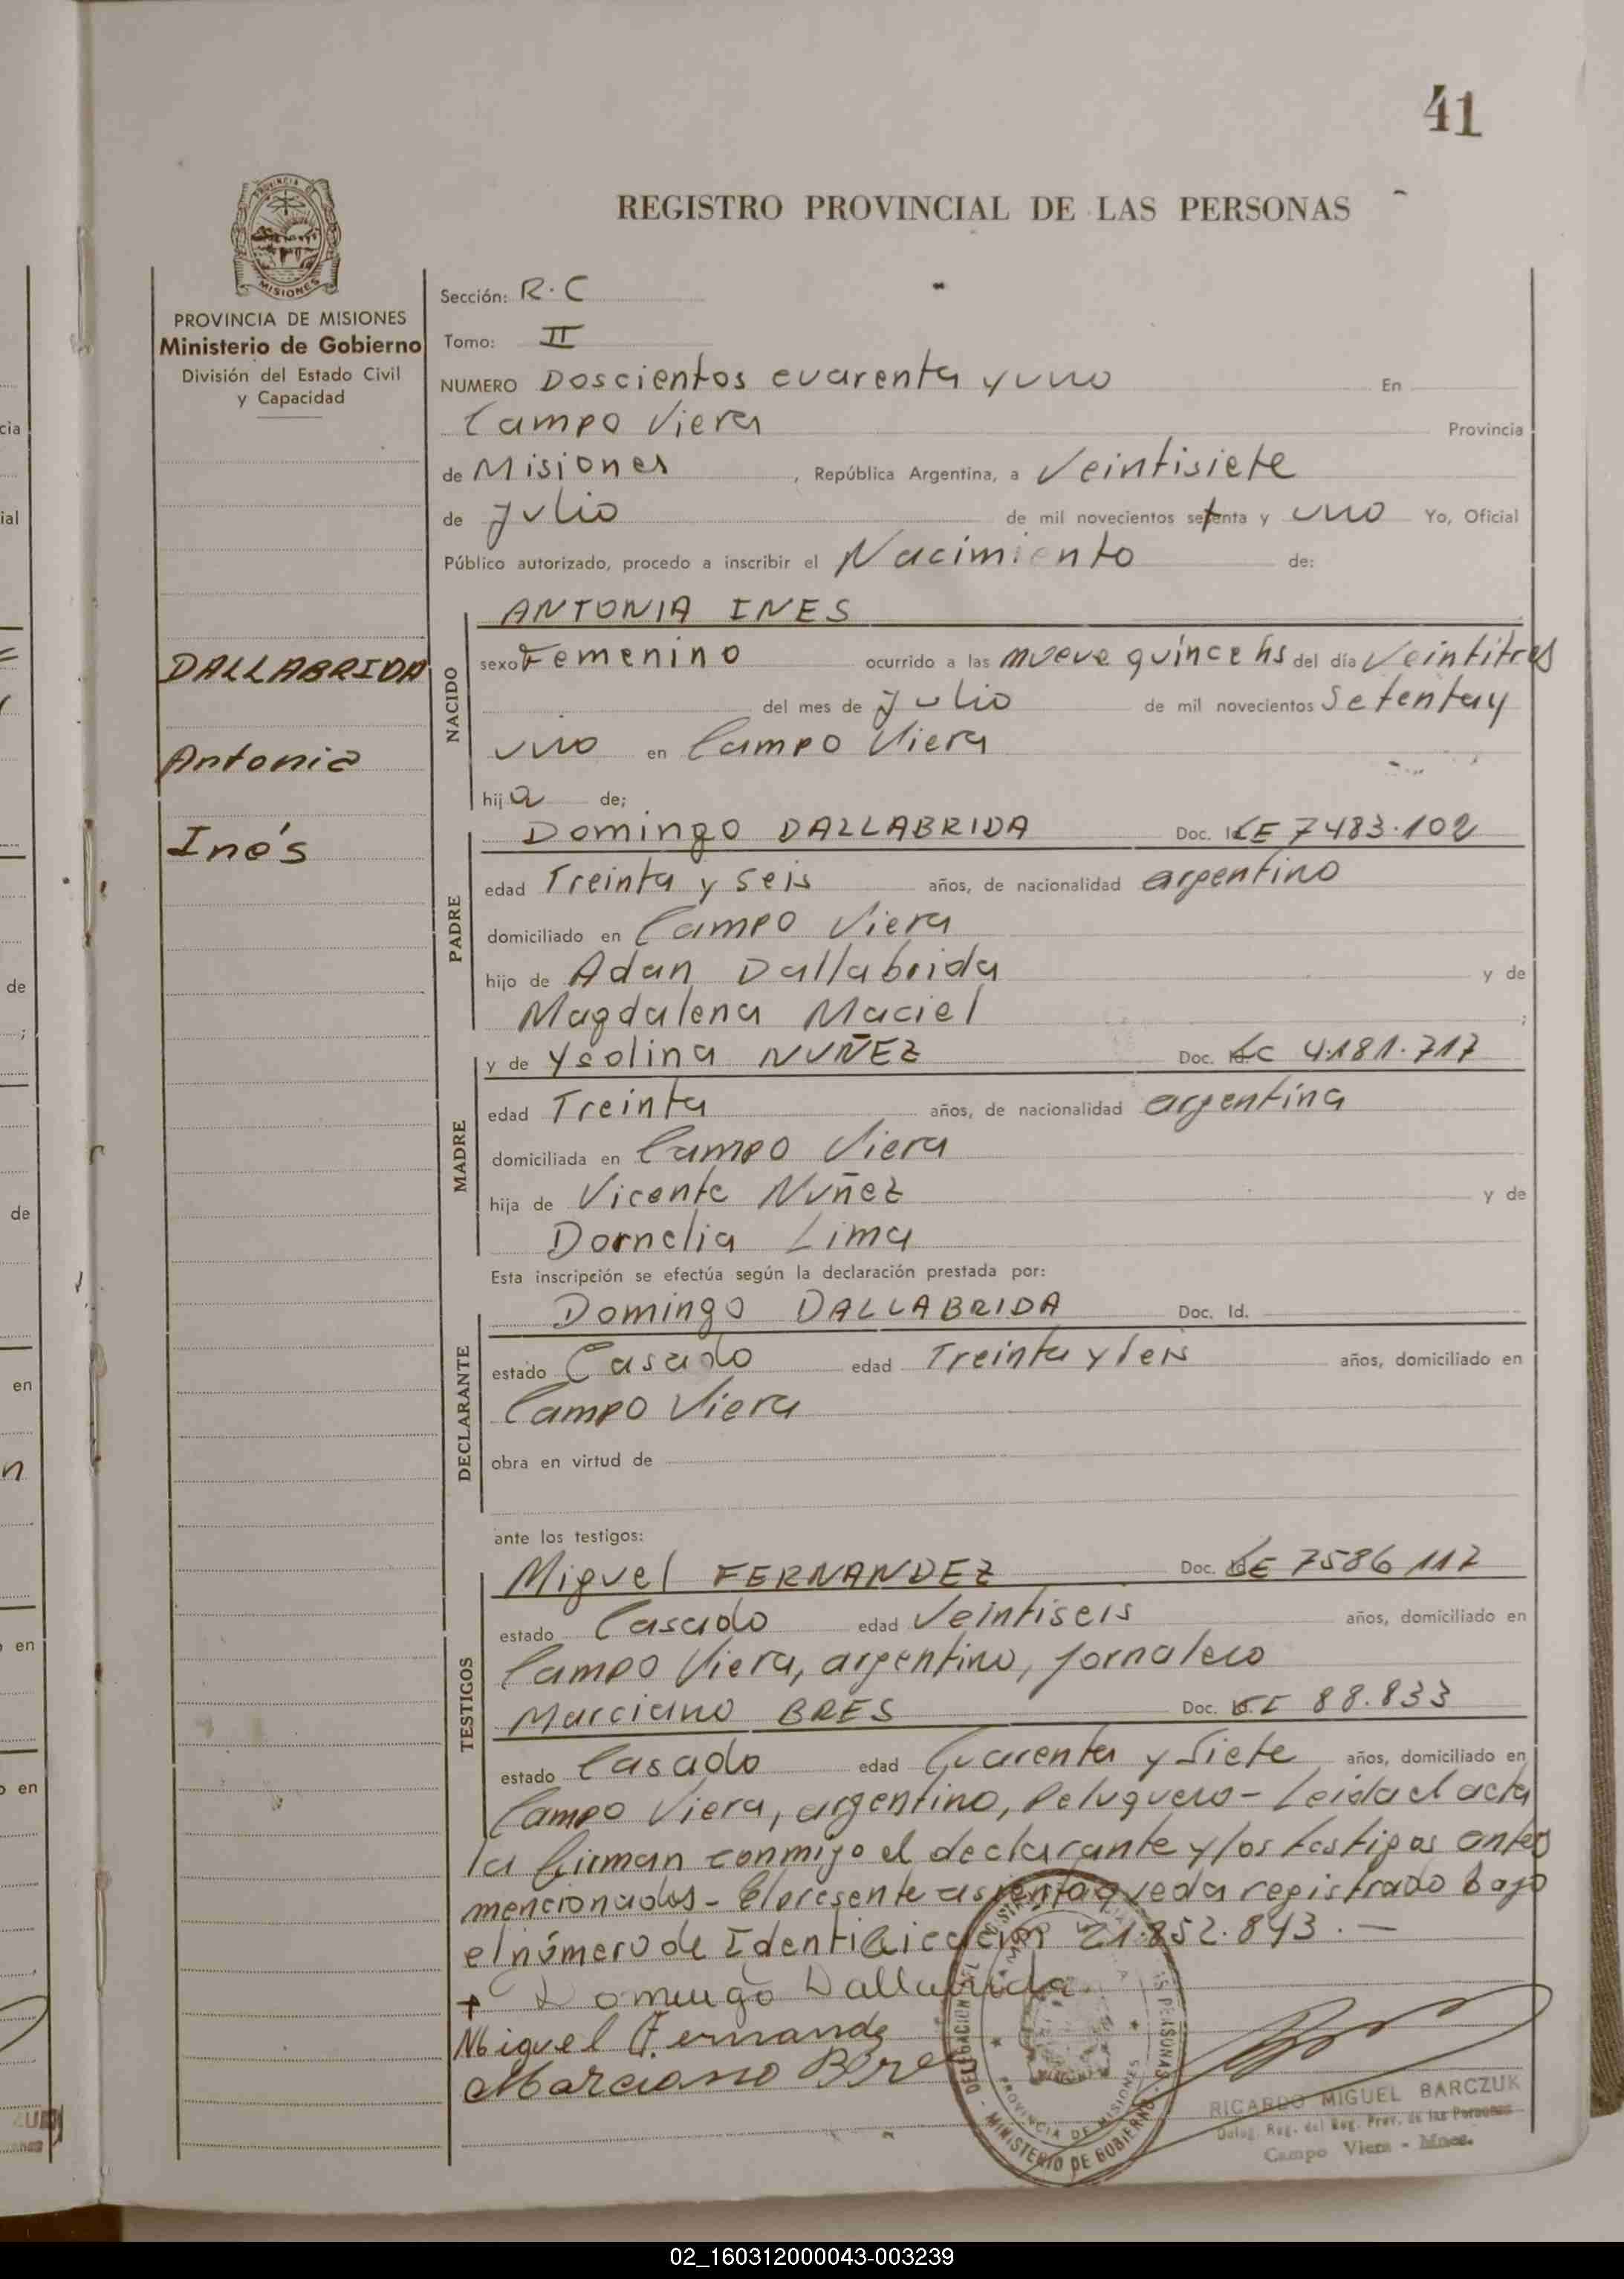 41
REGISTRO PROVINCIAL DE LAS PERSONAS
PROVINCIA DE
MISIONES
PROVINCIA DE MISIONES
Ministerio de Gobierno
División del Estado Civil
y Capacidad
DALLABRIDA
Antonia
Inés
Sección: R.C
Tomo: II
NUMERO Doscientos cuarenta y uno En
Campo Viera Provincia
de Misiones, República Argentina, a Veintisiete
de Julio de mil novecientos setenta y uno Yo, Oficial
Público autorizado, procedo a inscribir el Nacimiento de:
NACIDO
ANTONIA INES
sexo Femenino ocurrido a las nueve quince hs del día Veintitres
del mes de Julio de mil novecientos Setenta y
uno en Campo Viera
hija de;
PADRE
Domingo DALLABRIDA Doc. LE 7483.102
edad Treinta y seis años, de nacionalidad argentino
domiciliado en Campo Viera
hijo de Adan Dallabrida y de
Magdalena Maciel ;
MADRE
y de Ysolina NUÑEZ Doc. LC 4.181.717
edad Treinta años, de nacionalidad argentina
domiciliada en Campo Viera
hija de Vicente Nuñez y de
Dornelia Lima
Esta inscripción se efectúa según la declaración prestada por:
DECLARANTE
Domingo DALLABRIDA Doc. Id.
estado Casado edad Treinta y seis años, domiciliado en
Campo Viera
obra en virtud de
ante los testigos:
TESTIGOS
Miguel FERNANDEZ Doc. LE 7586117
estado Casado edad Veintiseis años, domiciliado en
Campo Viera, argentino, jornalero
Marciano BRES Doc. 88.833
estado Casado edad Cuarenta y Siete años, domiciliado en
Campo Viera, argentino, Peluquero - Leida el acta
la firman conmigo el declarante y los testigos antes
mencionados - El presente asiento queda registrado bajo
el número de Identificación 21.852.893.-
Domingo Dallabrida
Miguel Fernande
Marciano Bre
PROVINCIA DE MISIONES
MINISTERIO DE GOBIERNO
RICARDO MIGUEL BARCZUK
Deleg. Reg. del Reg. Prov. de las Personas
Campo Viera - Mnes.
02_160312000043-003239